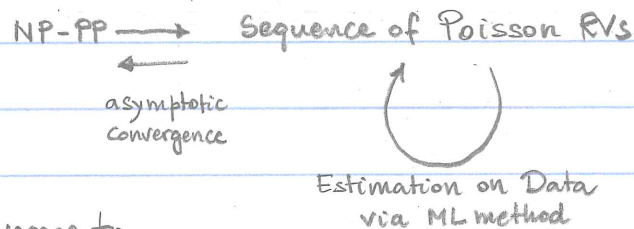 NP-PP → Sequence of Poisson RVs
←
asymptotic
convergence
Estimation on Data
via ML method